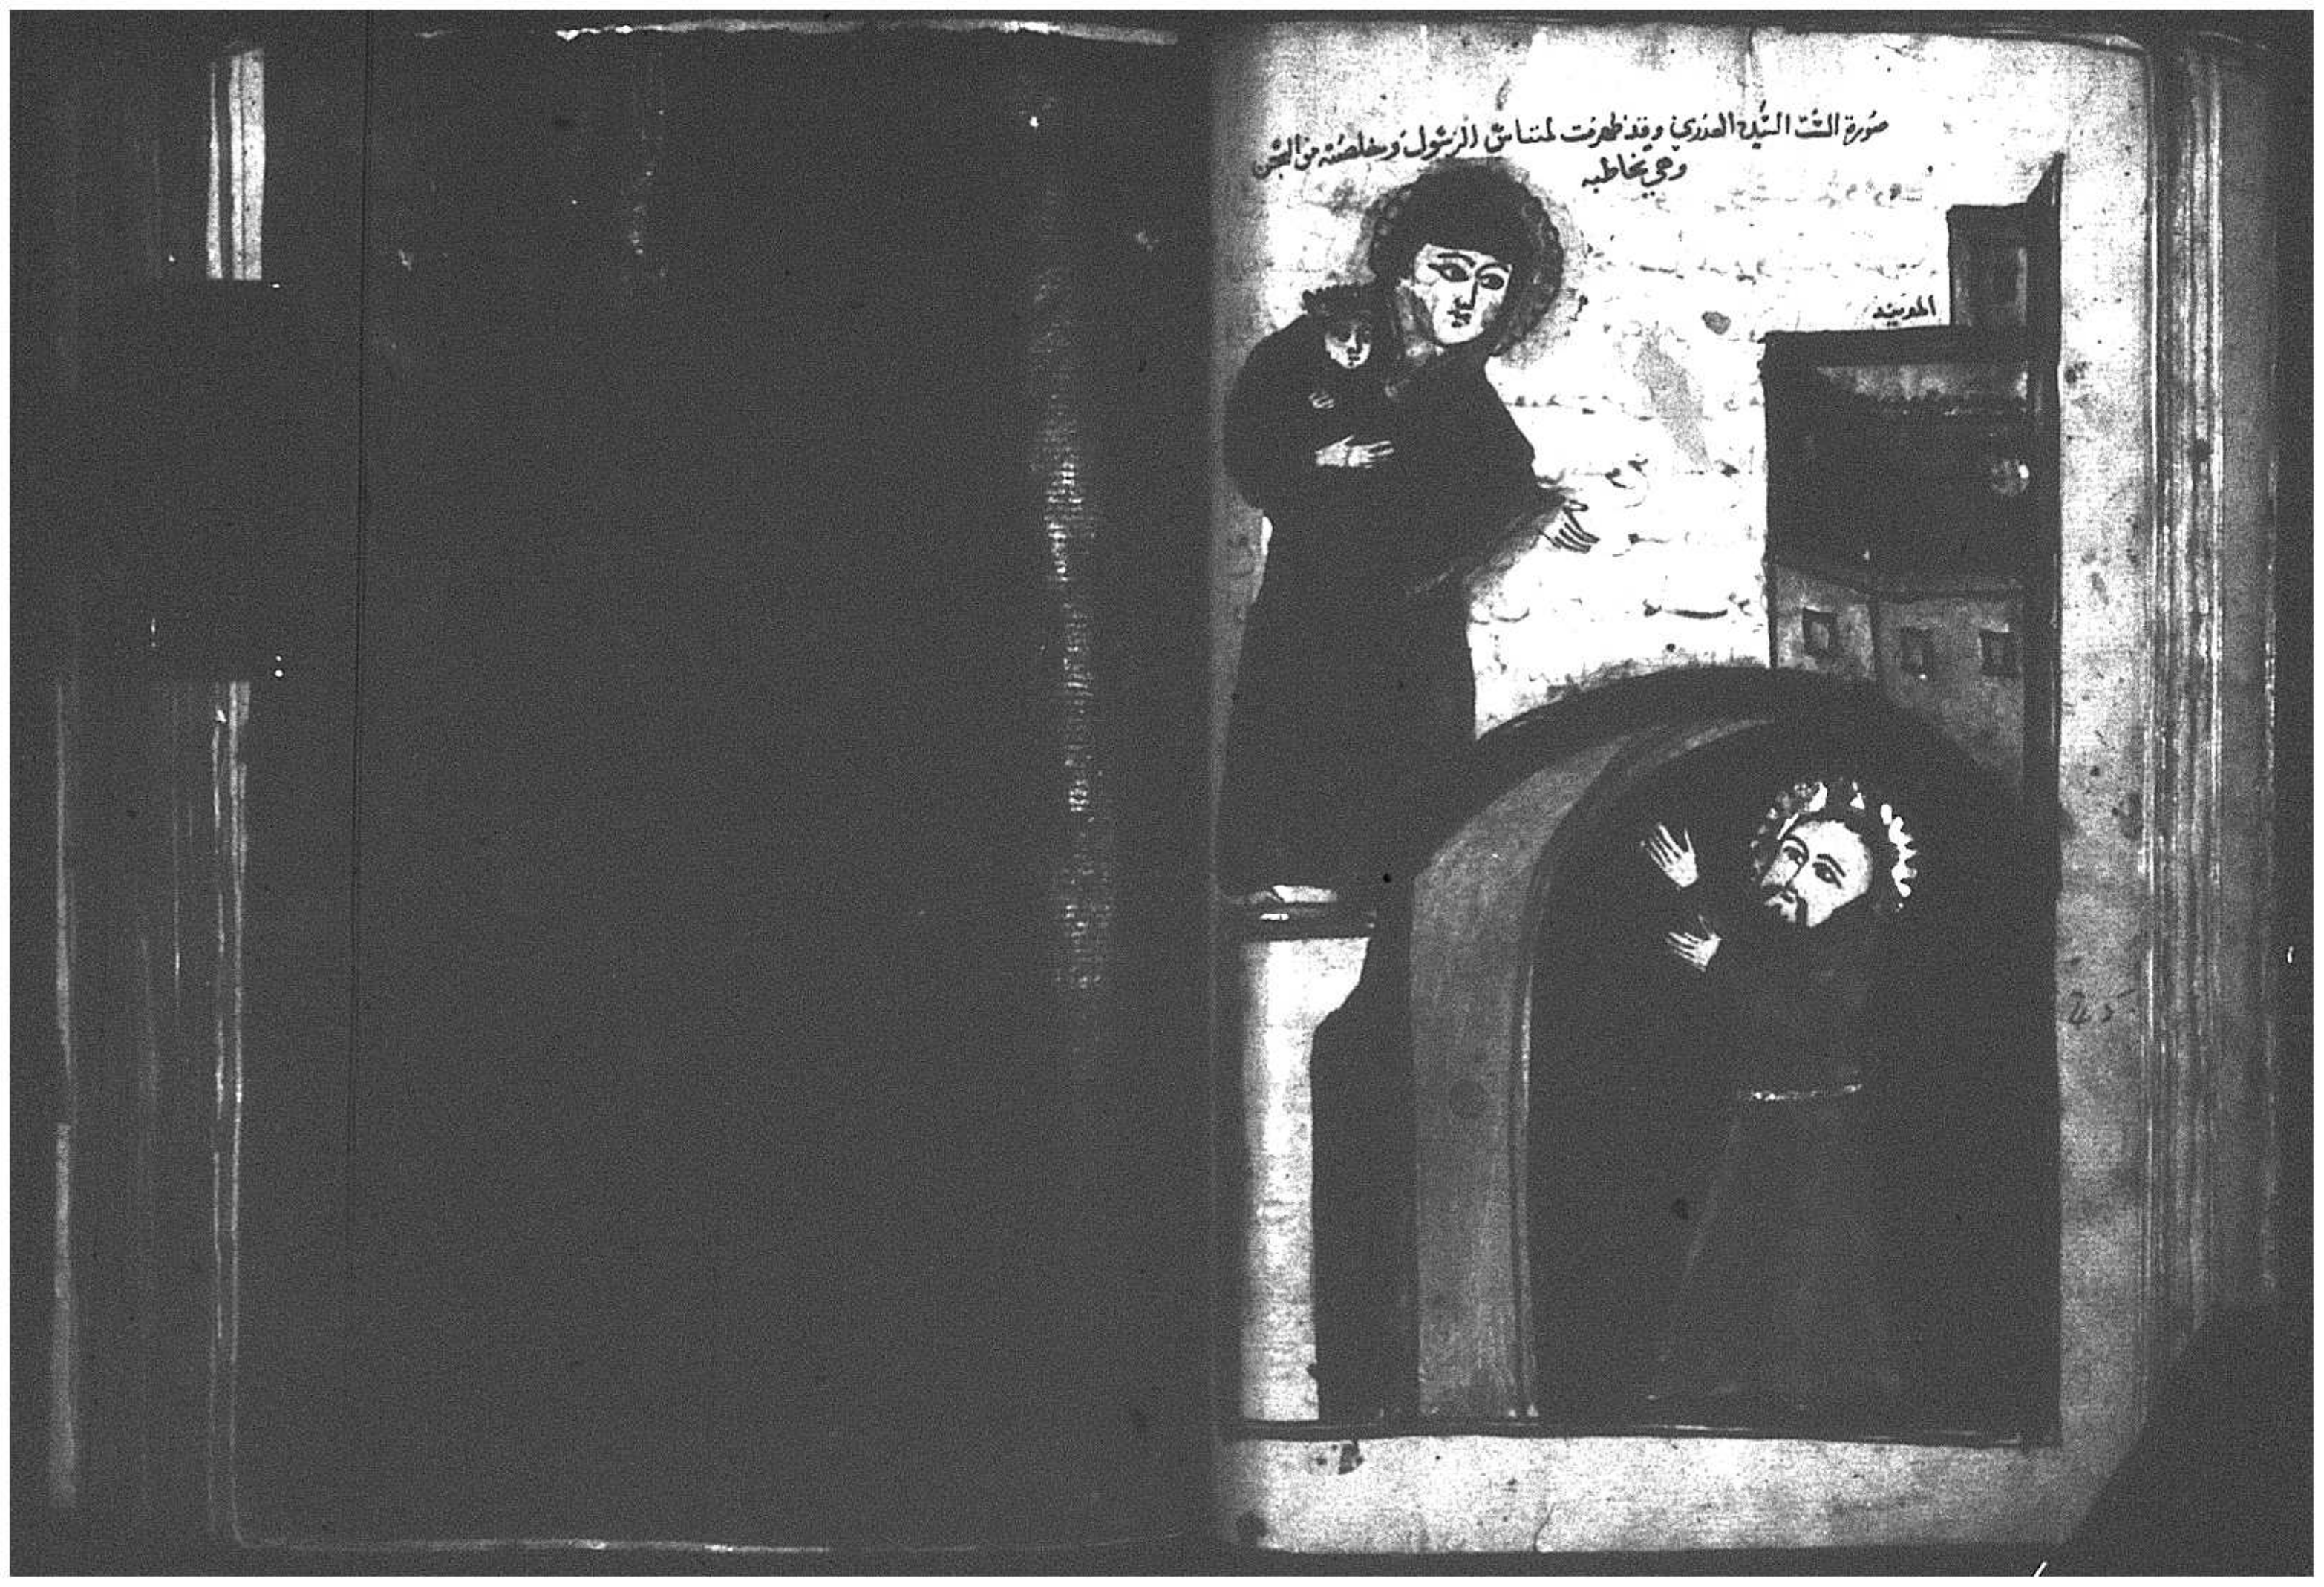 صورة الستّ السيّده العذري وقد ظهرت لمتياس الرسول وخلصته من السجن
وهي تخاطبه
المدينه
245